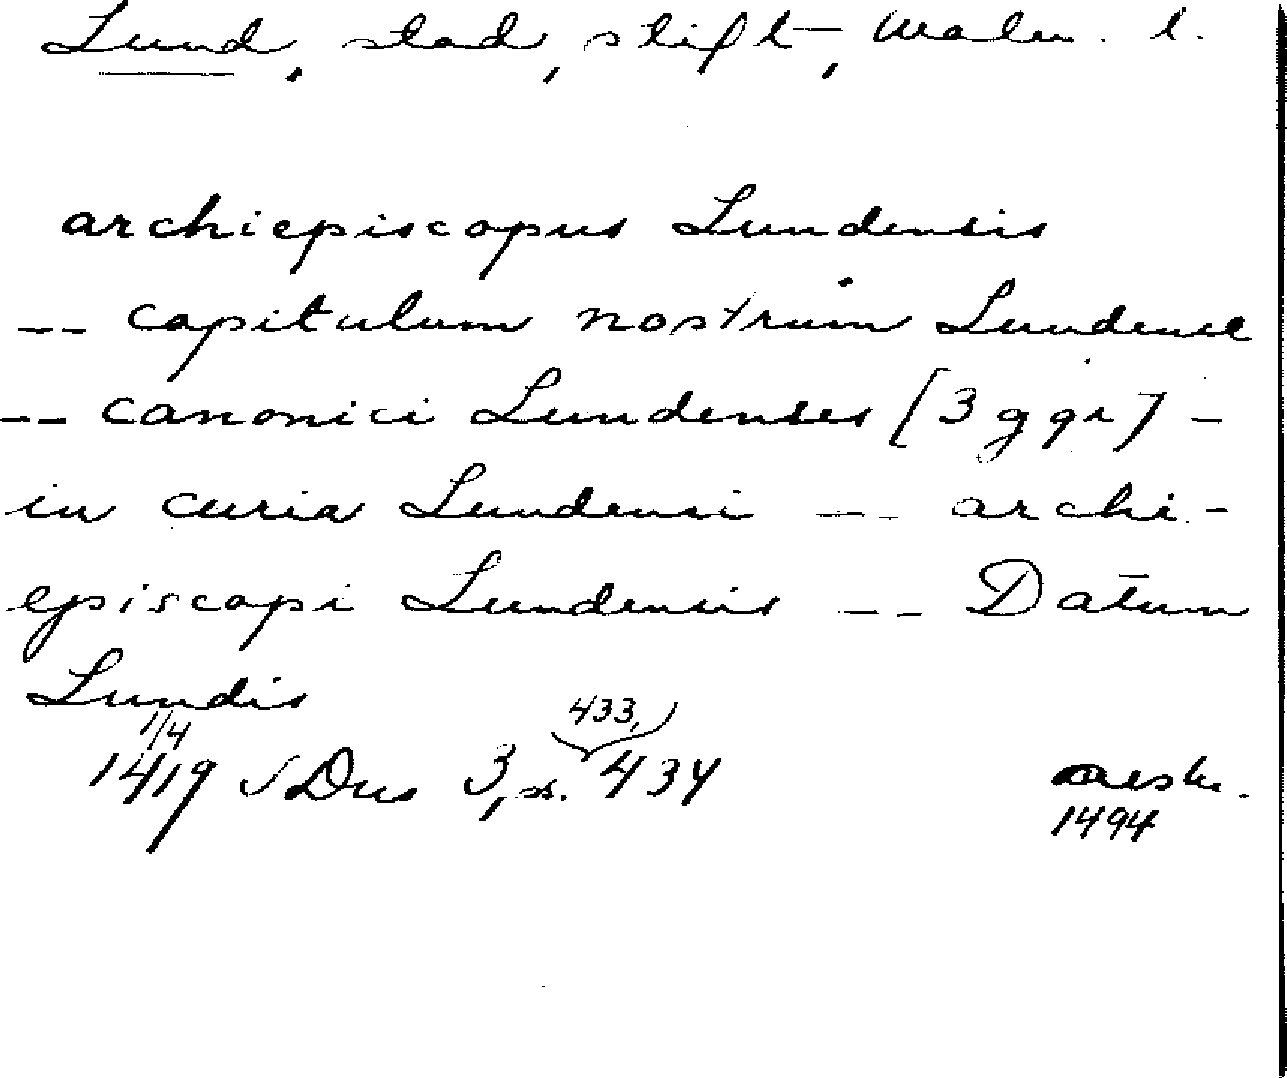 Lund, stad, stift, Malm. l.
archiepiscopus Lundensis
-- capitulum nostrum Lundense
-- canonici Lundenses [3 ggr] -
in curia Lundensi -- archi-
episcopi Lundensis -- Datum
Lundis
1/4 433,
1419 Dns 3, s. 434
avskr.
1494